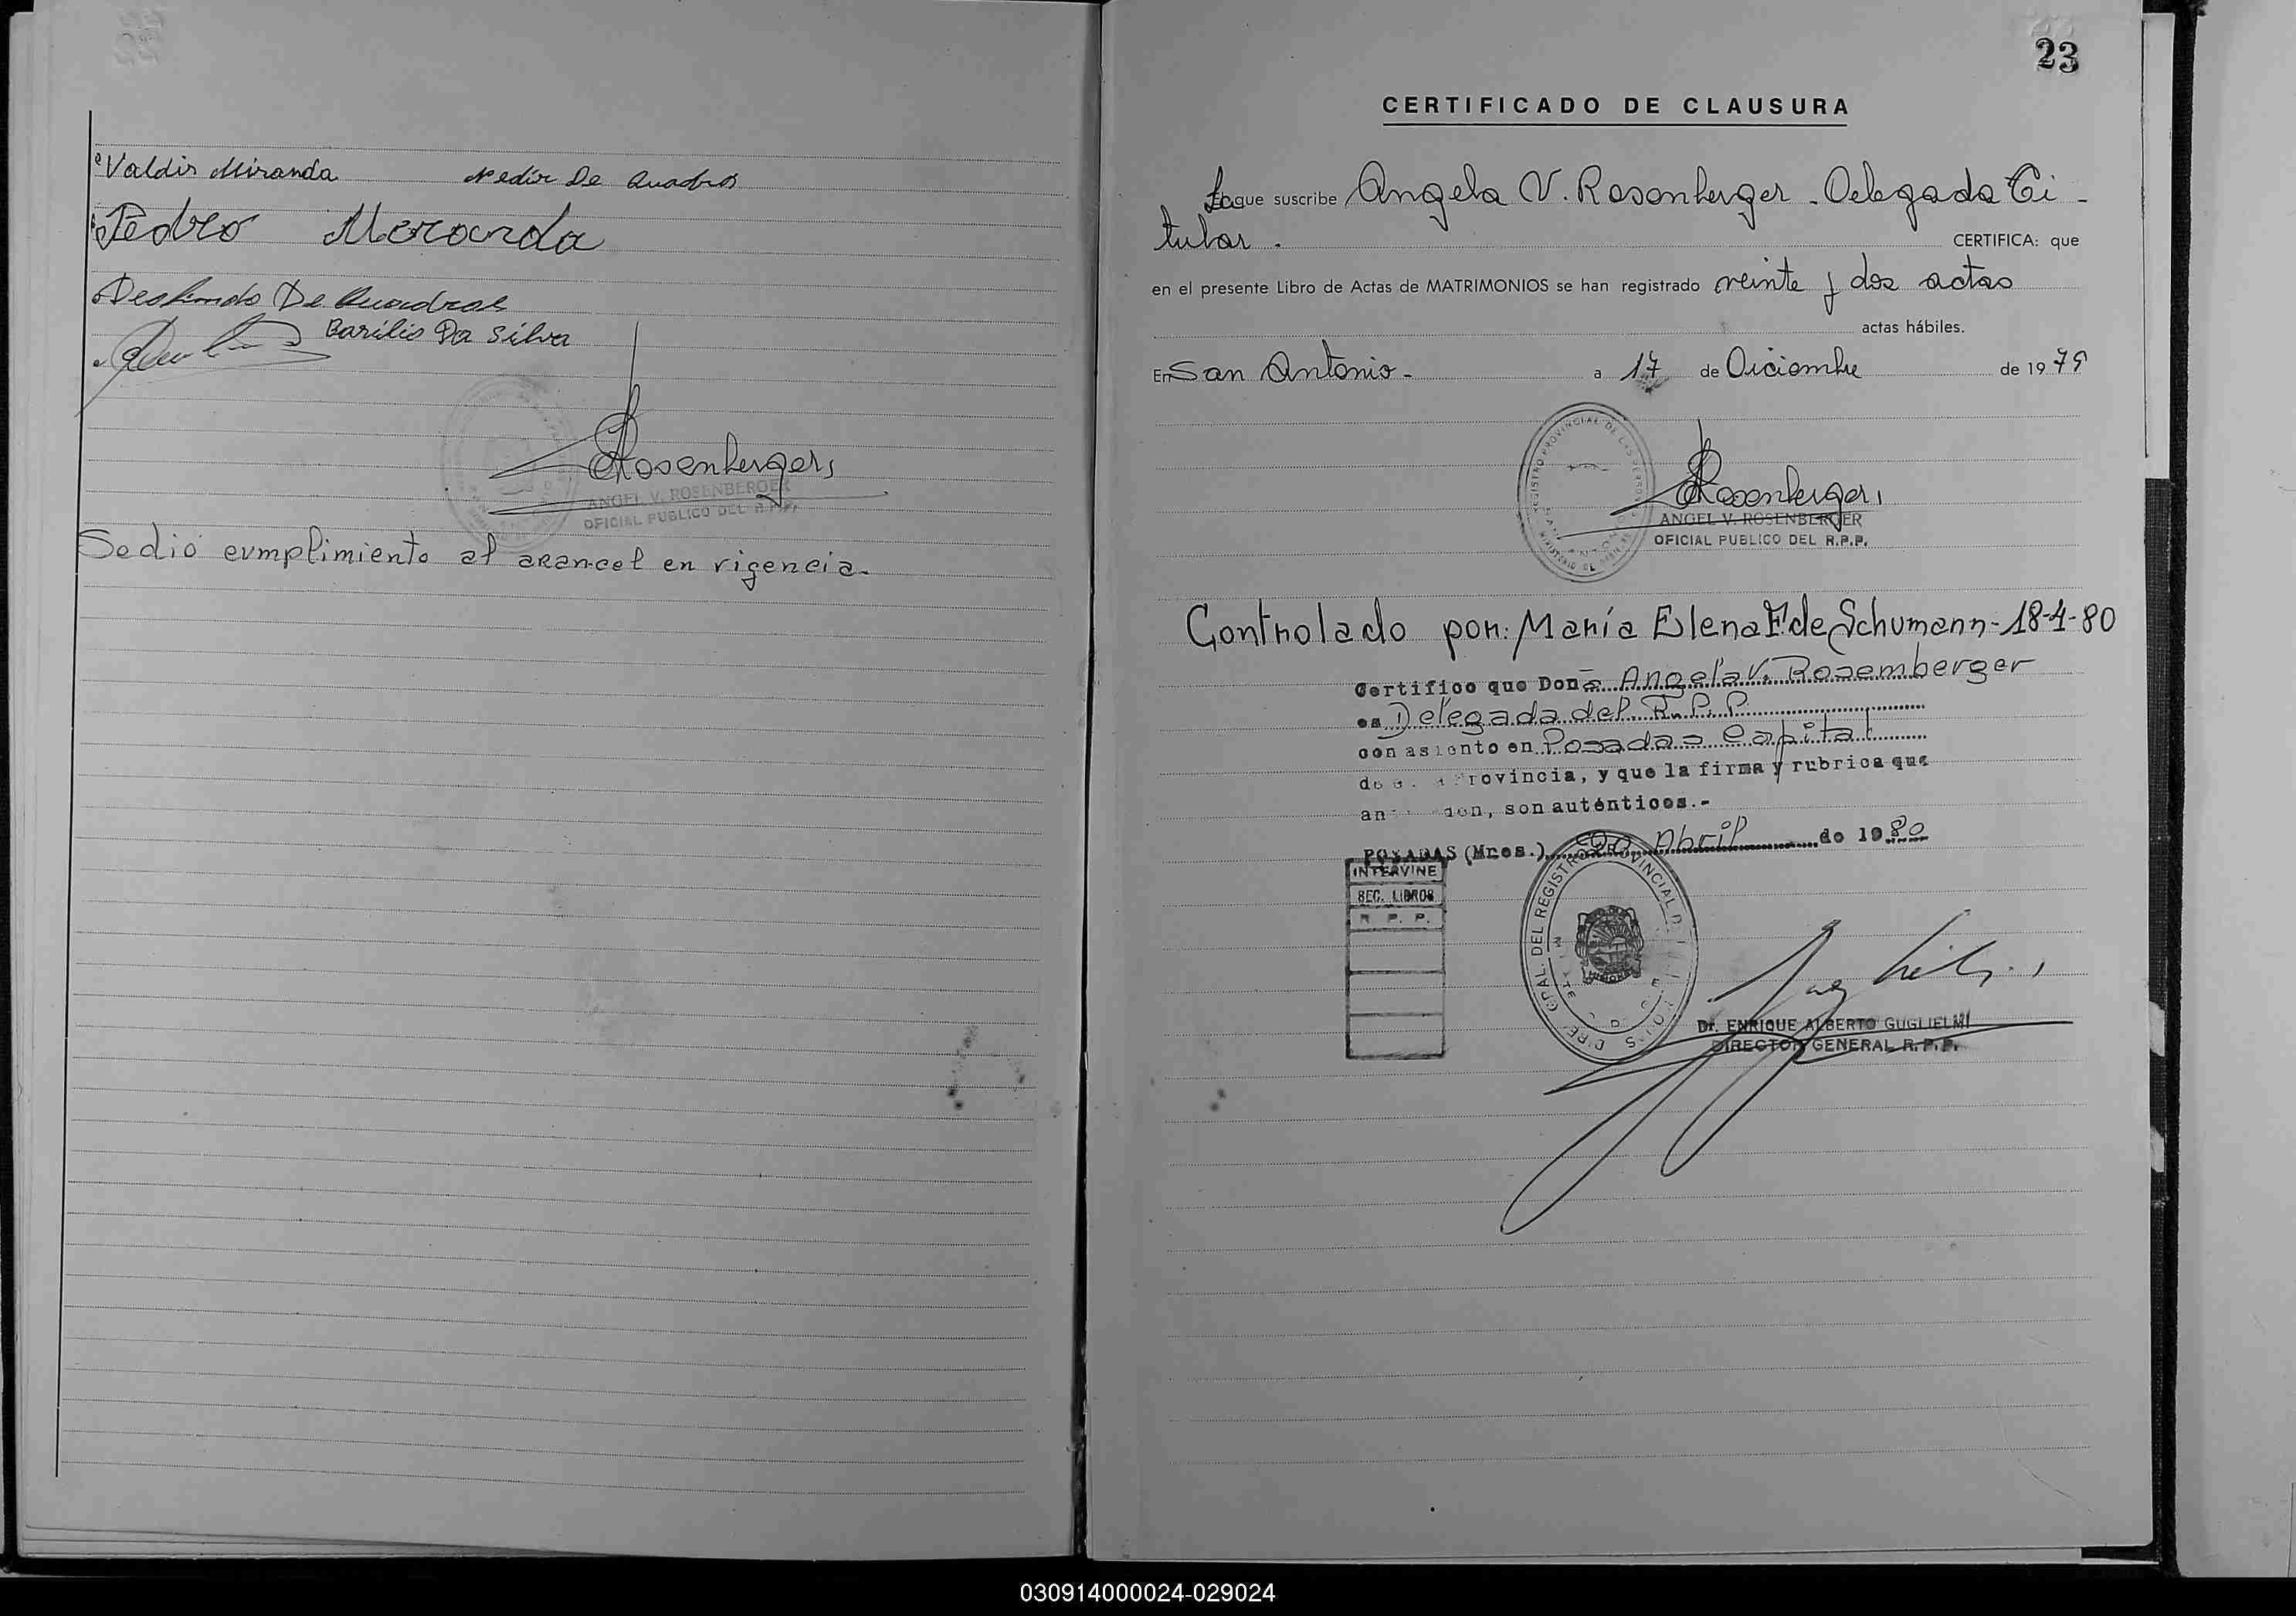 Valdir Miranda Nedir De Quadros
Pedro Meroanda
De Quadros
Barilio Da Silva
Rosenberger
ANGEL V. ROSENBERGER
OFICIAL PUBLICO DEL R.P.P.
Se dió cumplimiento al arancel en vigencia.
23
CERTIFICADO DE CLAUSURA
La que suscribe Angela V. Rosenberger - Delegada Ti-
tular. CERTIFICA: que
en el presente Libro de Actas de MATRIMONIOS se han registrado veinte y dos actas
actas hábiles.
En San Antonio - a 17 de Diciembre de 1979
REGISTRO PROVINCIAL DE LAS
MINISTERIO DE
Rosenberger
ANGEL V. ROSENBERGER
OFICIAL PUBLICO DEL R.P.P.
Controlado por: María Elena F. de Schumann - 18-4-80
Certifico que Doña Angela V. Rosemberger
es Delegada del R. P. P.
con asiento en Posadas Capital
Provincia, y que la firma y rubrica que
son auténticos.-
POSADAS (Mnes.) Abril de 1980
INTERVINE
SEC. LIBROS
R. P. P.
GRAL. DEL REGISTRO
MISIONES
Dr. ENRIQUE ALBERTO GUGLIELMI
DIRECTOR GENERAL R.P.P.
030914000024-029024